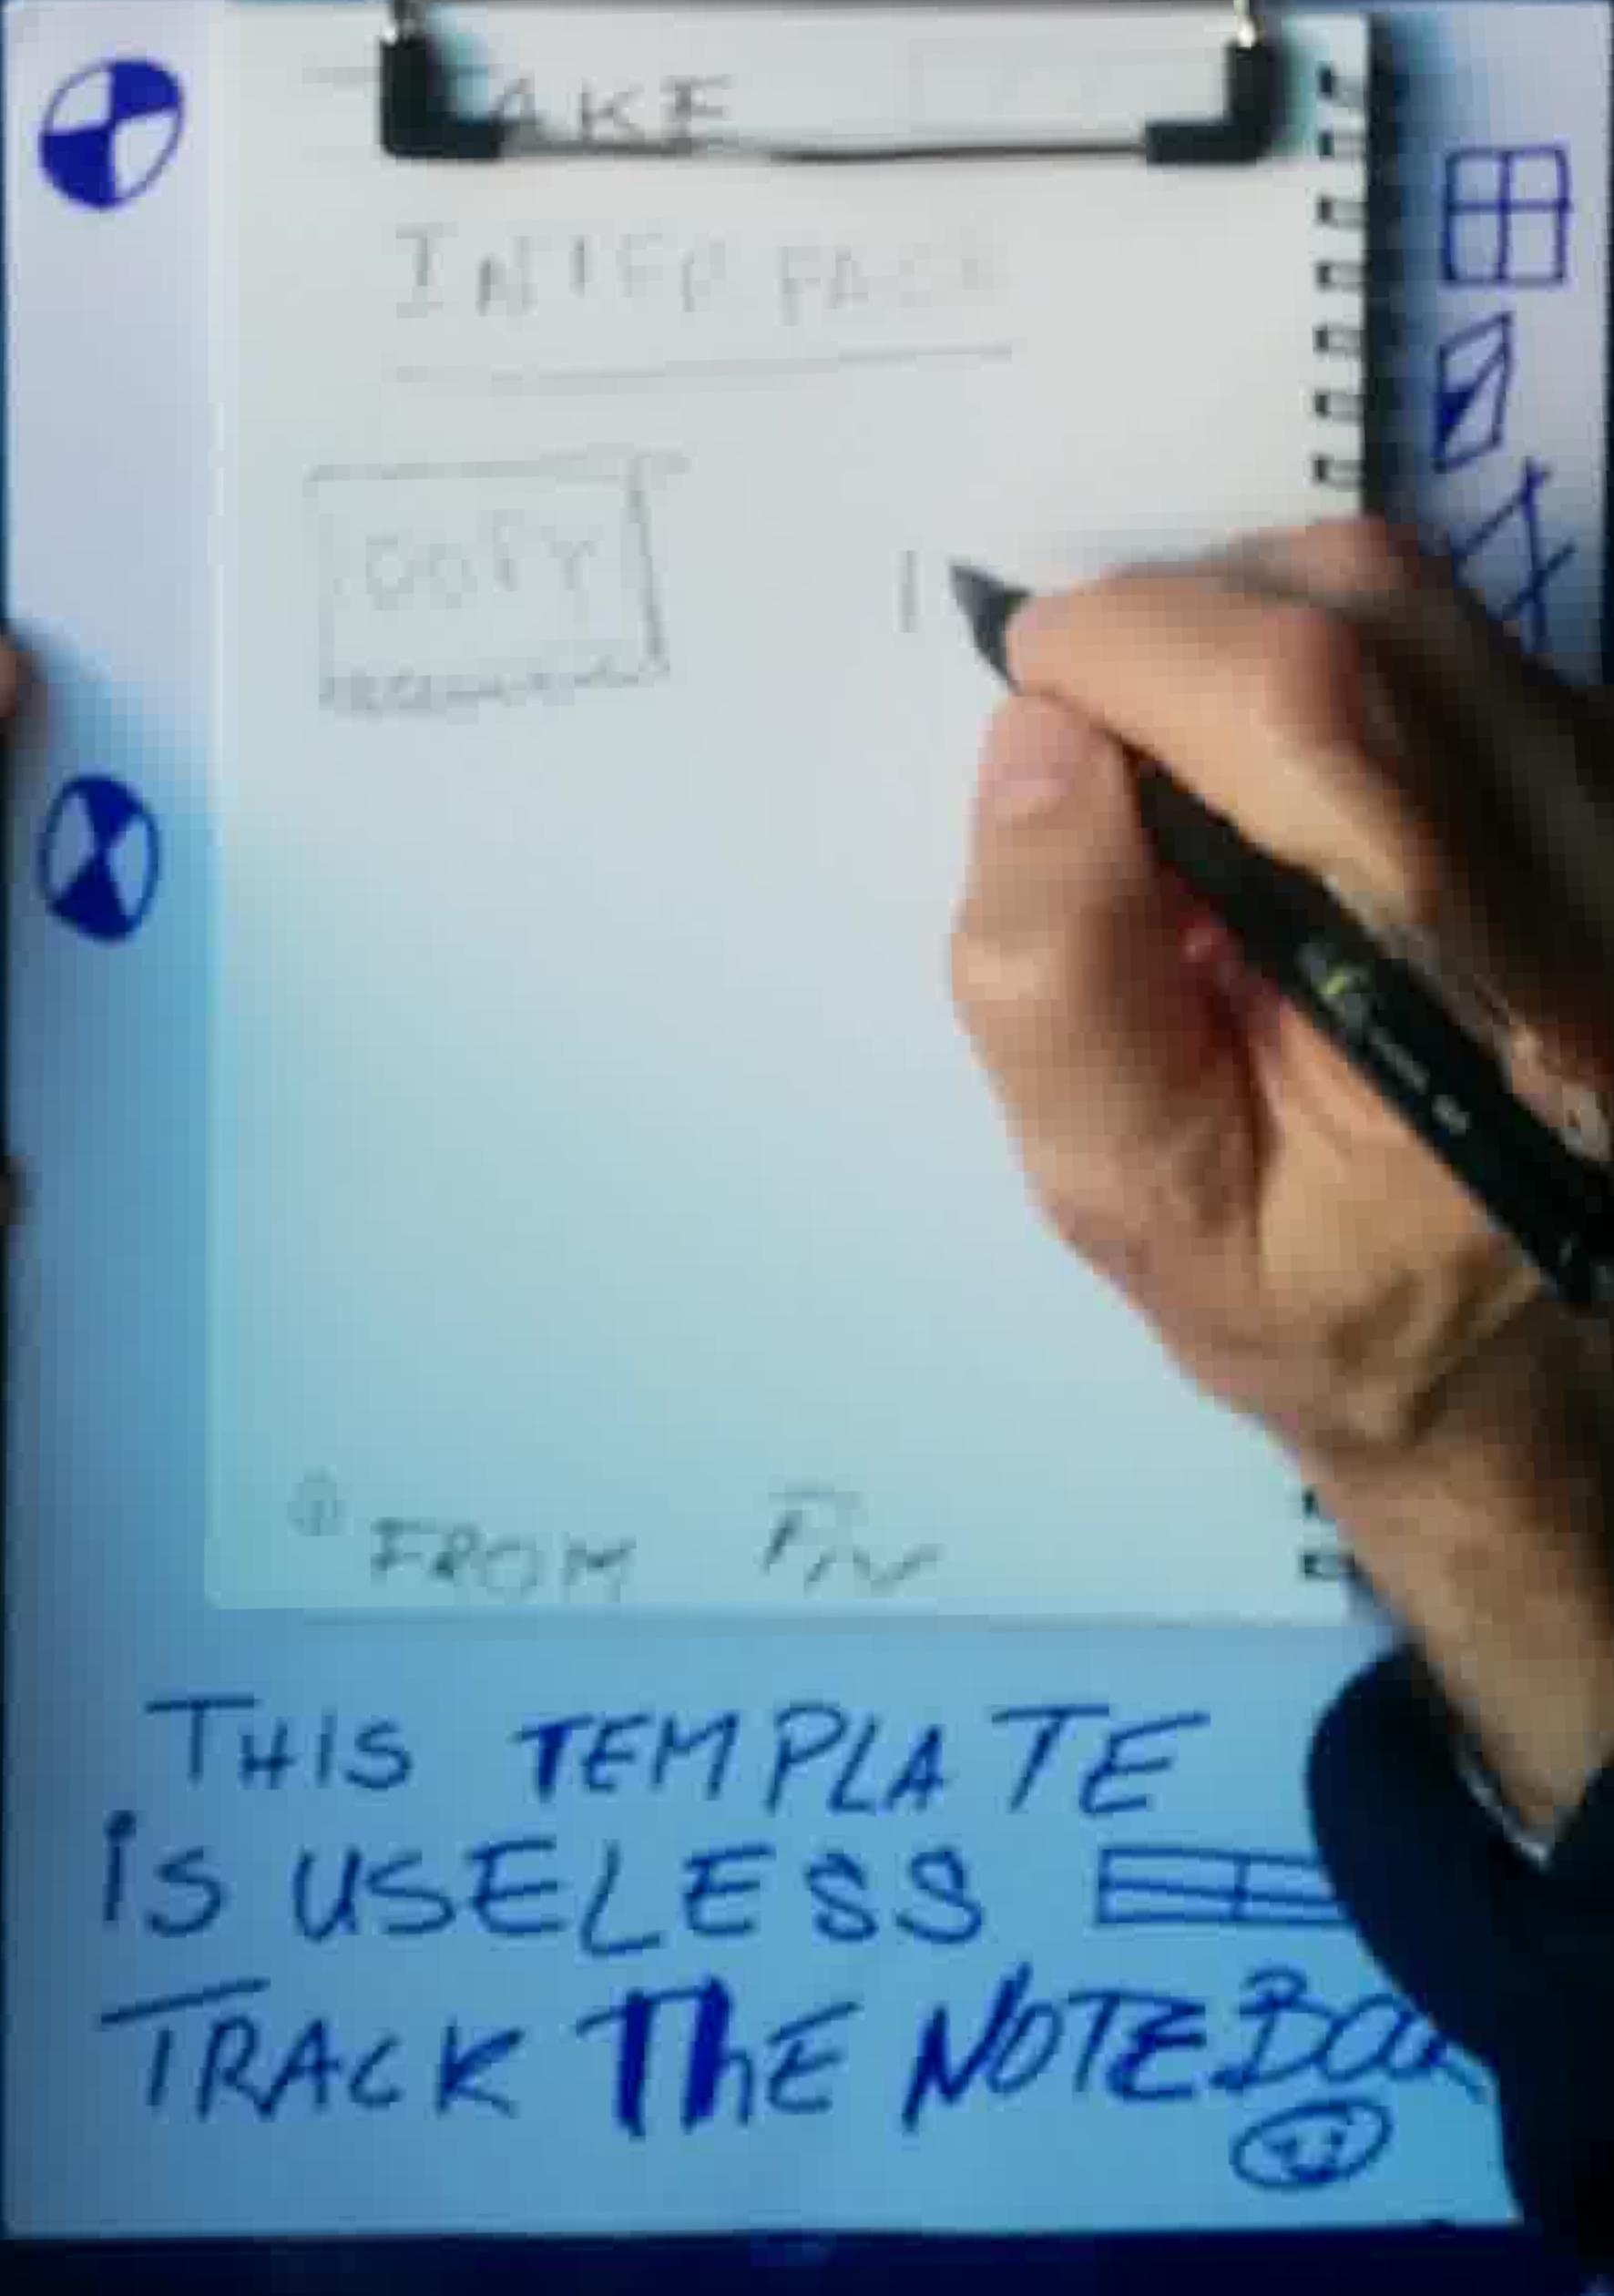 AKE
INTERFACE
COPY
FROM
THIS TEMPLATE
IS USELESS
TRACK THE NOTEBOO